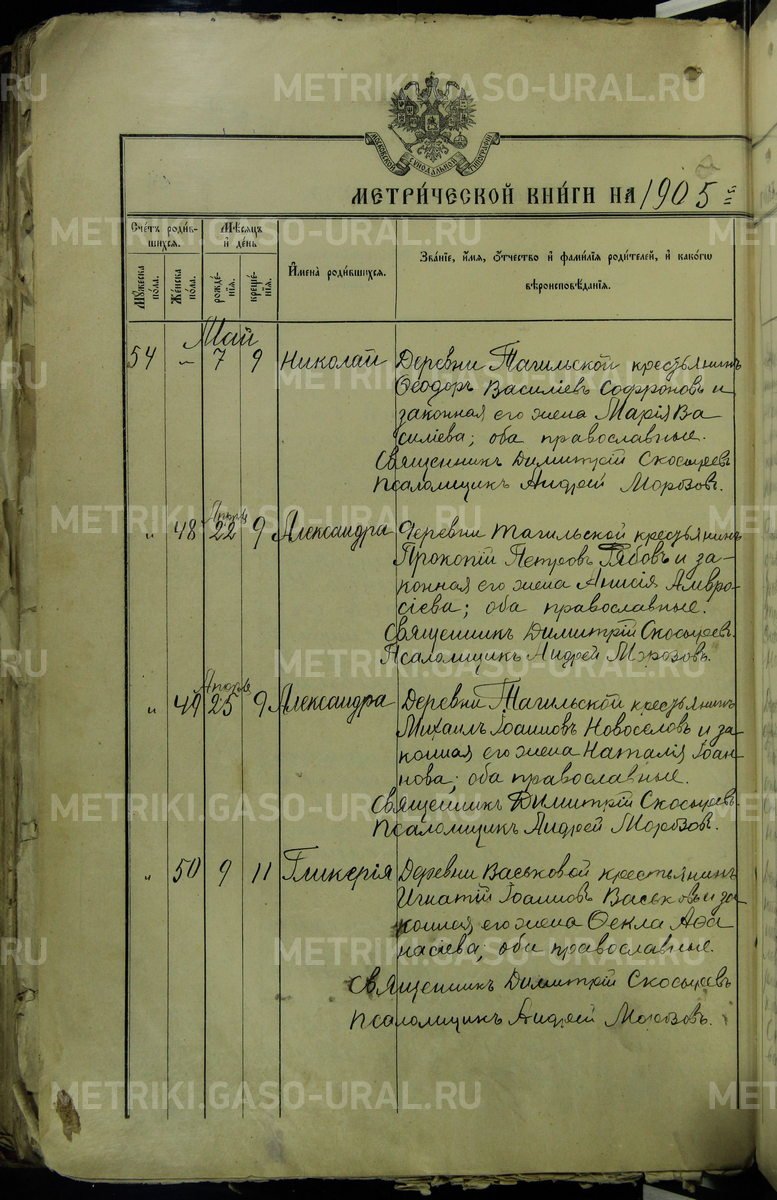 METRIKI.GASO-URAL.RU
МОСКОВСКОЙ СѴНОДАЛЬНОЙ ТИПОГРАФІИ
МЕТРИ́ЧЕСКОЙ КНИ́ГИ НА 1905 й
Сче́тъ роди́в-
шихся.
Мѣ́сяцъ
и҆ де́нь
И҆мена̀ роди́вшихся.
Зва́нїе, и҆́мя, ѻ҆́тчество и҆ фами́лїѧ роди́телей, и҆ како́гѡ
вѣроисповѣ́данїѧ.
Мꙋ́жеска
по́ла.
Же́нска
по́ла.
рожде́-
нїѧ.
креще́-
нїѧ.
Май
54 " 7 9 Николай Деревни Тагильской крестьянинъ
Ѳеодоръ Василіевъ Софроновъ и
законная его жена Марія Ва-
силіева; оба православные.
Священникъ Димитрій Скосыревъ
Псаломщикъ Андрей Морозовъ.
METRIKI.GASO-URAL.RU
Апрѣля
" 48 22 9 Александра Деревни Тагильской крестьянинъ
Прокопій Петровъ Рябовъ и за-
конная его жена Анисія Амвро-
сіева; оба православные.
Священникъ Димитрій Скосыревъ.
Псаломщикъ Андрей Морозовъ.
METRIKI.GASO-URAL.RU
Апрѣля
" 49 25 9 Александра Деревни Тагильской крестьянинъ
Михаилъ Іоанновъ Новоселовъ и за-
конная его жена Наталія Іоан-
нова; оба православные.
Священникъ Димитрій Скосыревъ.
Псаломщикъ Андрей Морозовъ.
METRIKI.GASO-URAL.RU
" 50 9 11 Гликерія Деревни Васьковой крестьянинъ
Игнатій Іоанновъ Васьковъ и за-
конная его жена Ѳекла Аѳа-
насіева; оба православные.
Священникъ Димитрій Скосыревъ
Псаломщикъ Андрей Морозовъ.
METRIKI.GASO-URAL.RU